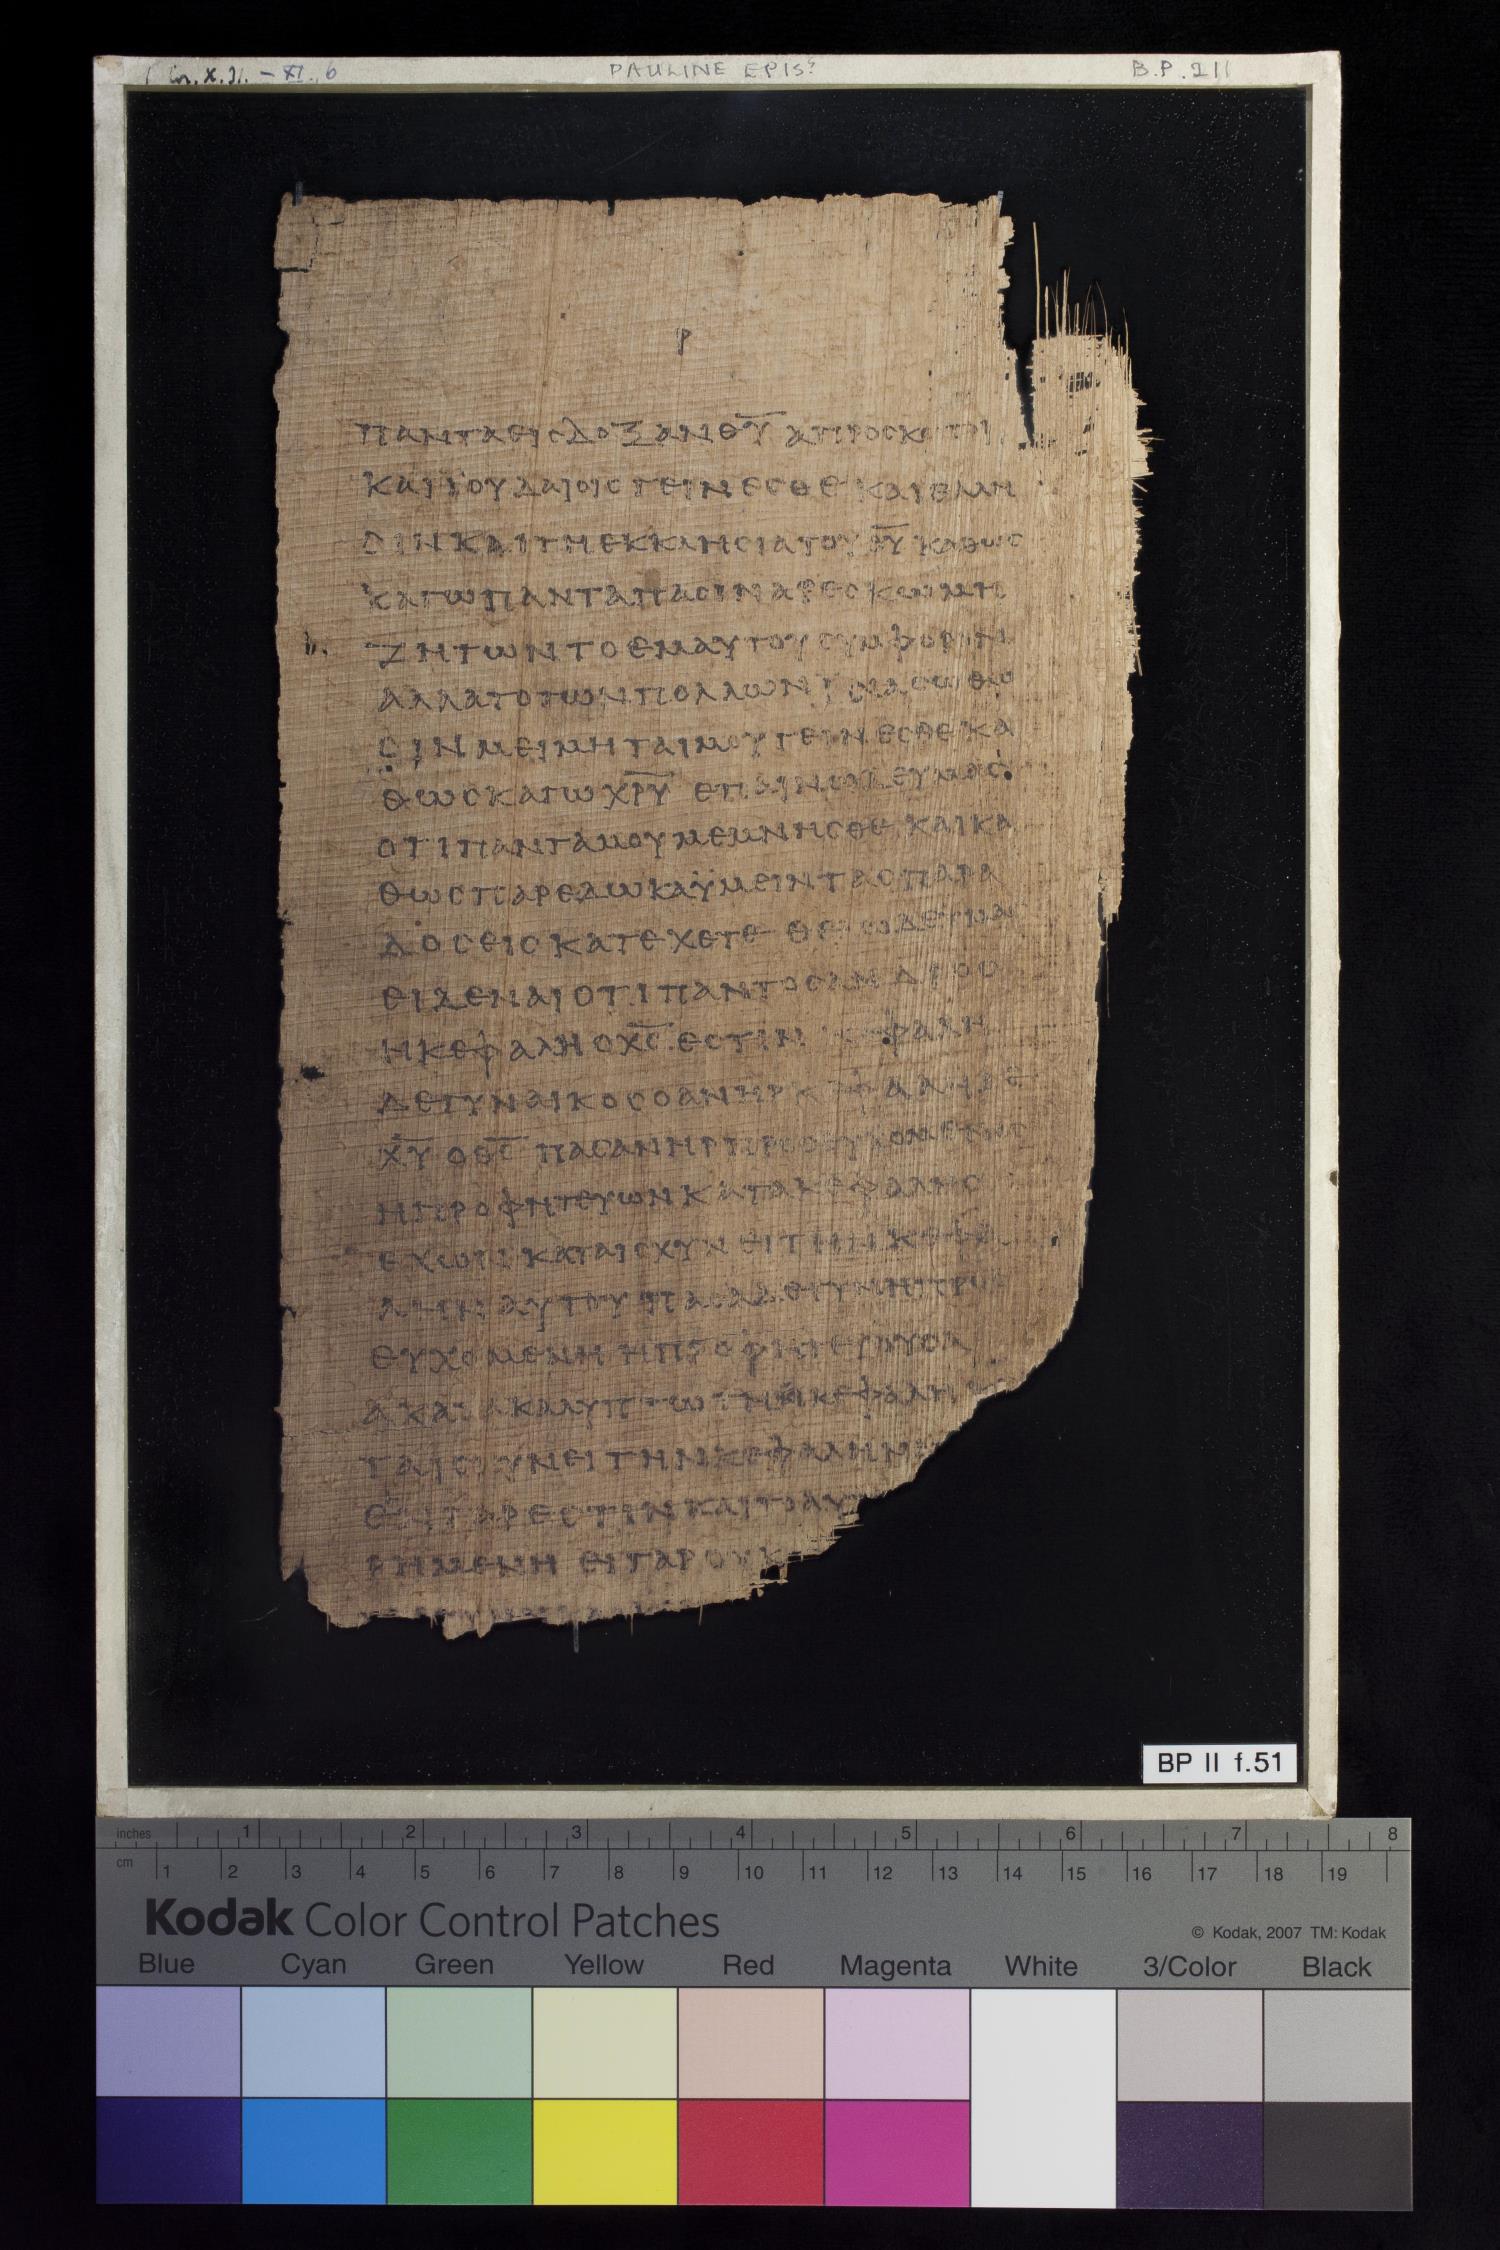 1 Cor. X. 31. - XI. 6 PAULINE EPIS? B.P. 211
ρ
πανταειςδοξανθ̅υ̅ απροσκοποι
καιϊουδαιοιςγεινεσθε καιελλη
σινκαιτηεκκλησιατουθ̅υ̅ καθως
καγωπανταπασιναρεσκωμη
ζητωντοεμαυτουσυμφορον
αλλατοτωνπολλωνϊνασωθω
σινμειμηταιμουγεινεσθεκα
θωςκαγωχ̅ρ̅υ̅ επαινωδευμας
οτιπανταμουμεμνησθε καικα
θωςπαρεδωκαϋμεινταςπαρα
δοσειςκατεχετε θελωδευμας
ειδεναιοτιπαντοςανδρος
ηκεφαληοχ̅ς̅ εστιν κεφαλη
δεγυναικοςοανηρκεφαληδε
χ̅υ̅ οθ̅ς̅ παςανηρπροσευχομενος
ηπροφητευωνκατακεφαλης
εχων καταισχυνειτηνκεφα
ληναυτουπασαδεγυνηπρος
ευχομενηηπροφητευουσα
ακατακαλυπτωτηκεφαλη
ταισχυνειτηνκεφαλην
ενγαρεστινκαιτοαυτ
ρημενη ειγαρουκ
BP II f.51
inches 1 2 3 4 5 6 7 8
cm 1 2 3 4 5 6 7 8 9 10 11 12 13 14 15 16 17 18 19
Kodak Color Control Patches
© Kodak, 2007 TM: Kodak
Blue Cyan Green Yellow Red Magenta White 3/Color Black